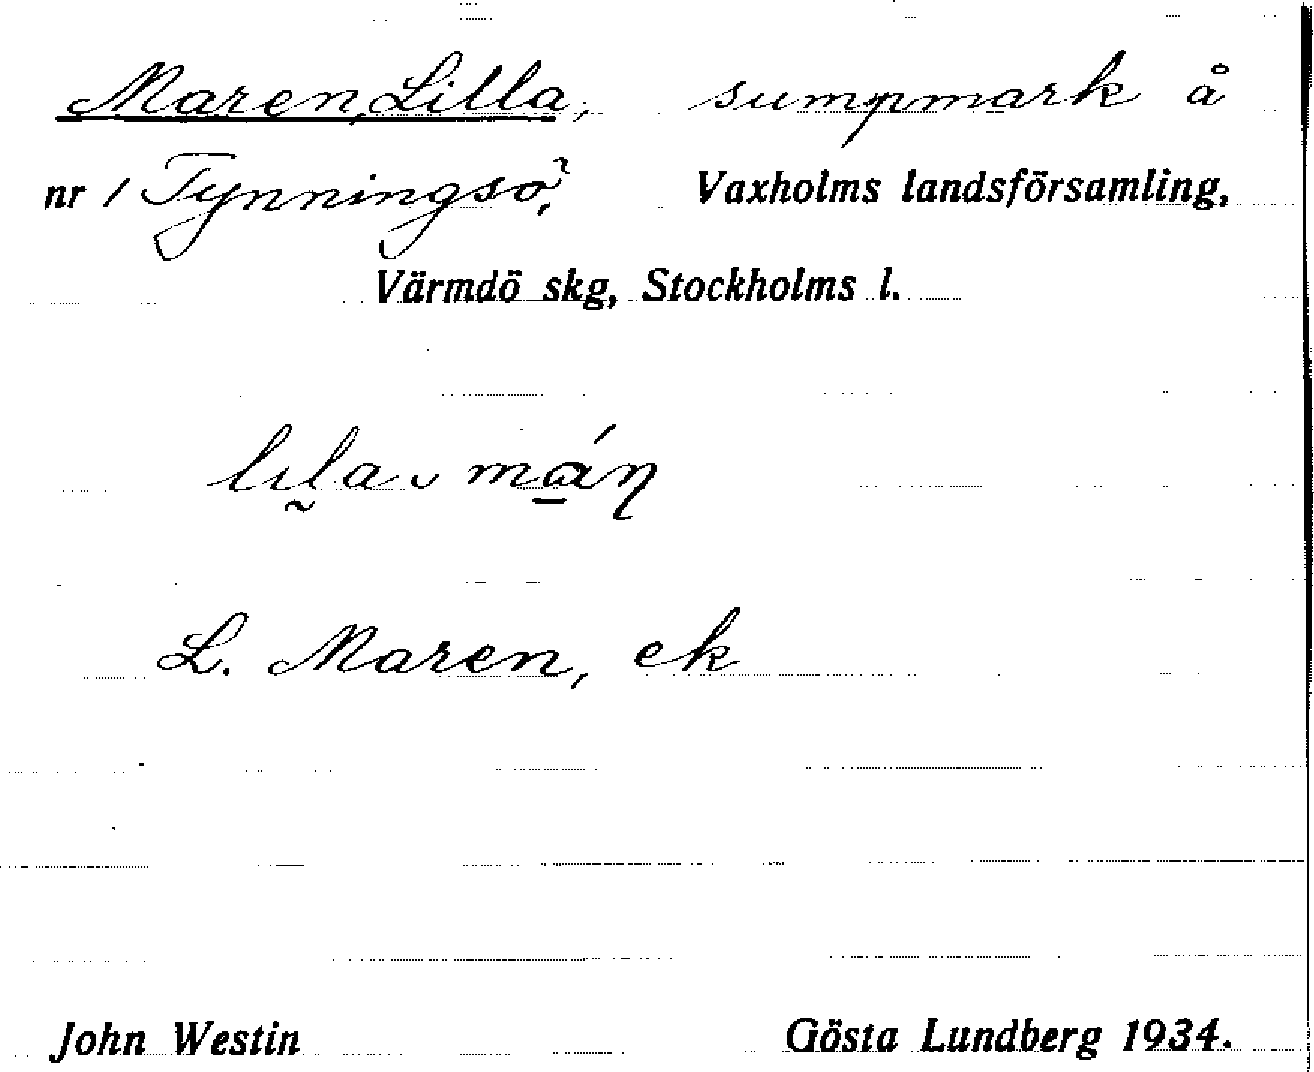 Maren, Lilla, sumpmark å
nr 1 Tynningsö, Vaxholms landsförsamling,
Värmdö skg, Stockholms l.
L. Maren, ek
John Westin Gösta Lundberg 1934.